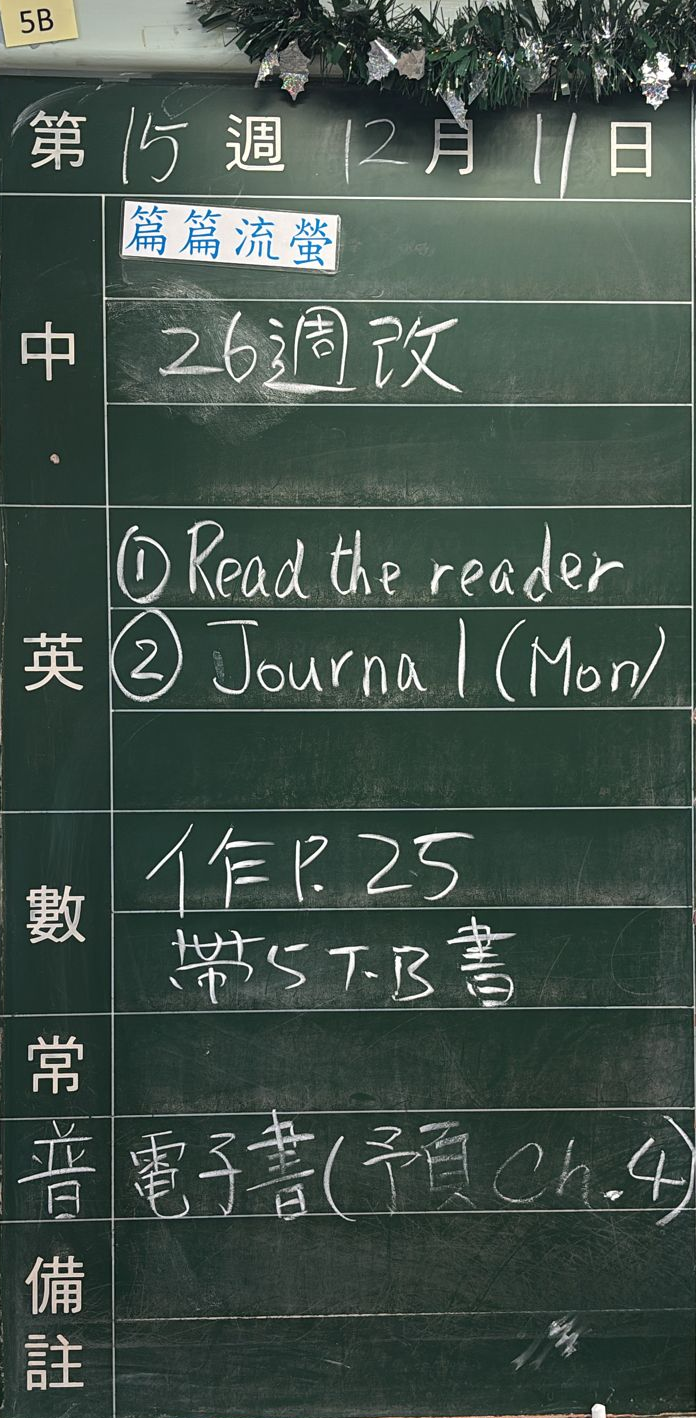 5B
第 15 週 12 月 11 日
中
篇篇流螢
26週改
英
① Read the reader
② Journal (Mon)
數
作P. 25
帶5下B書
常
普 電子書(預 Ch.4)
備註